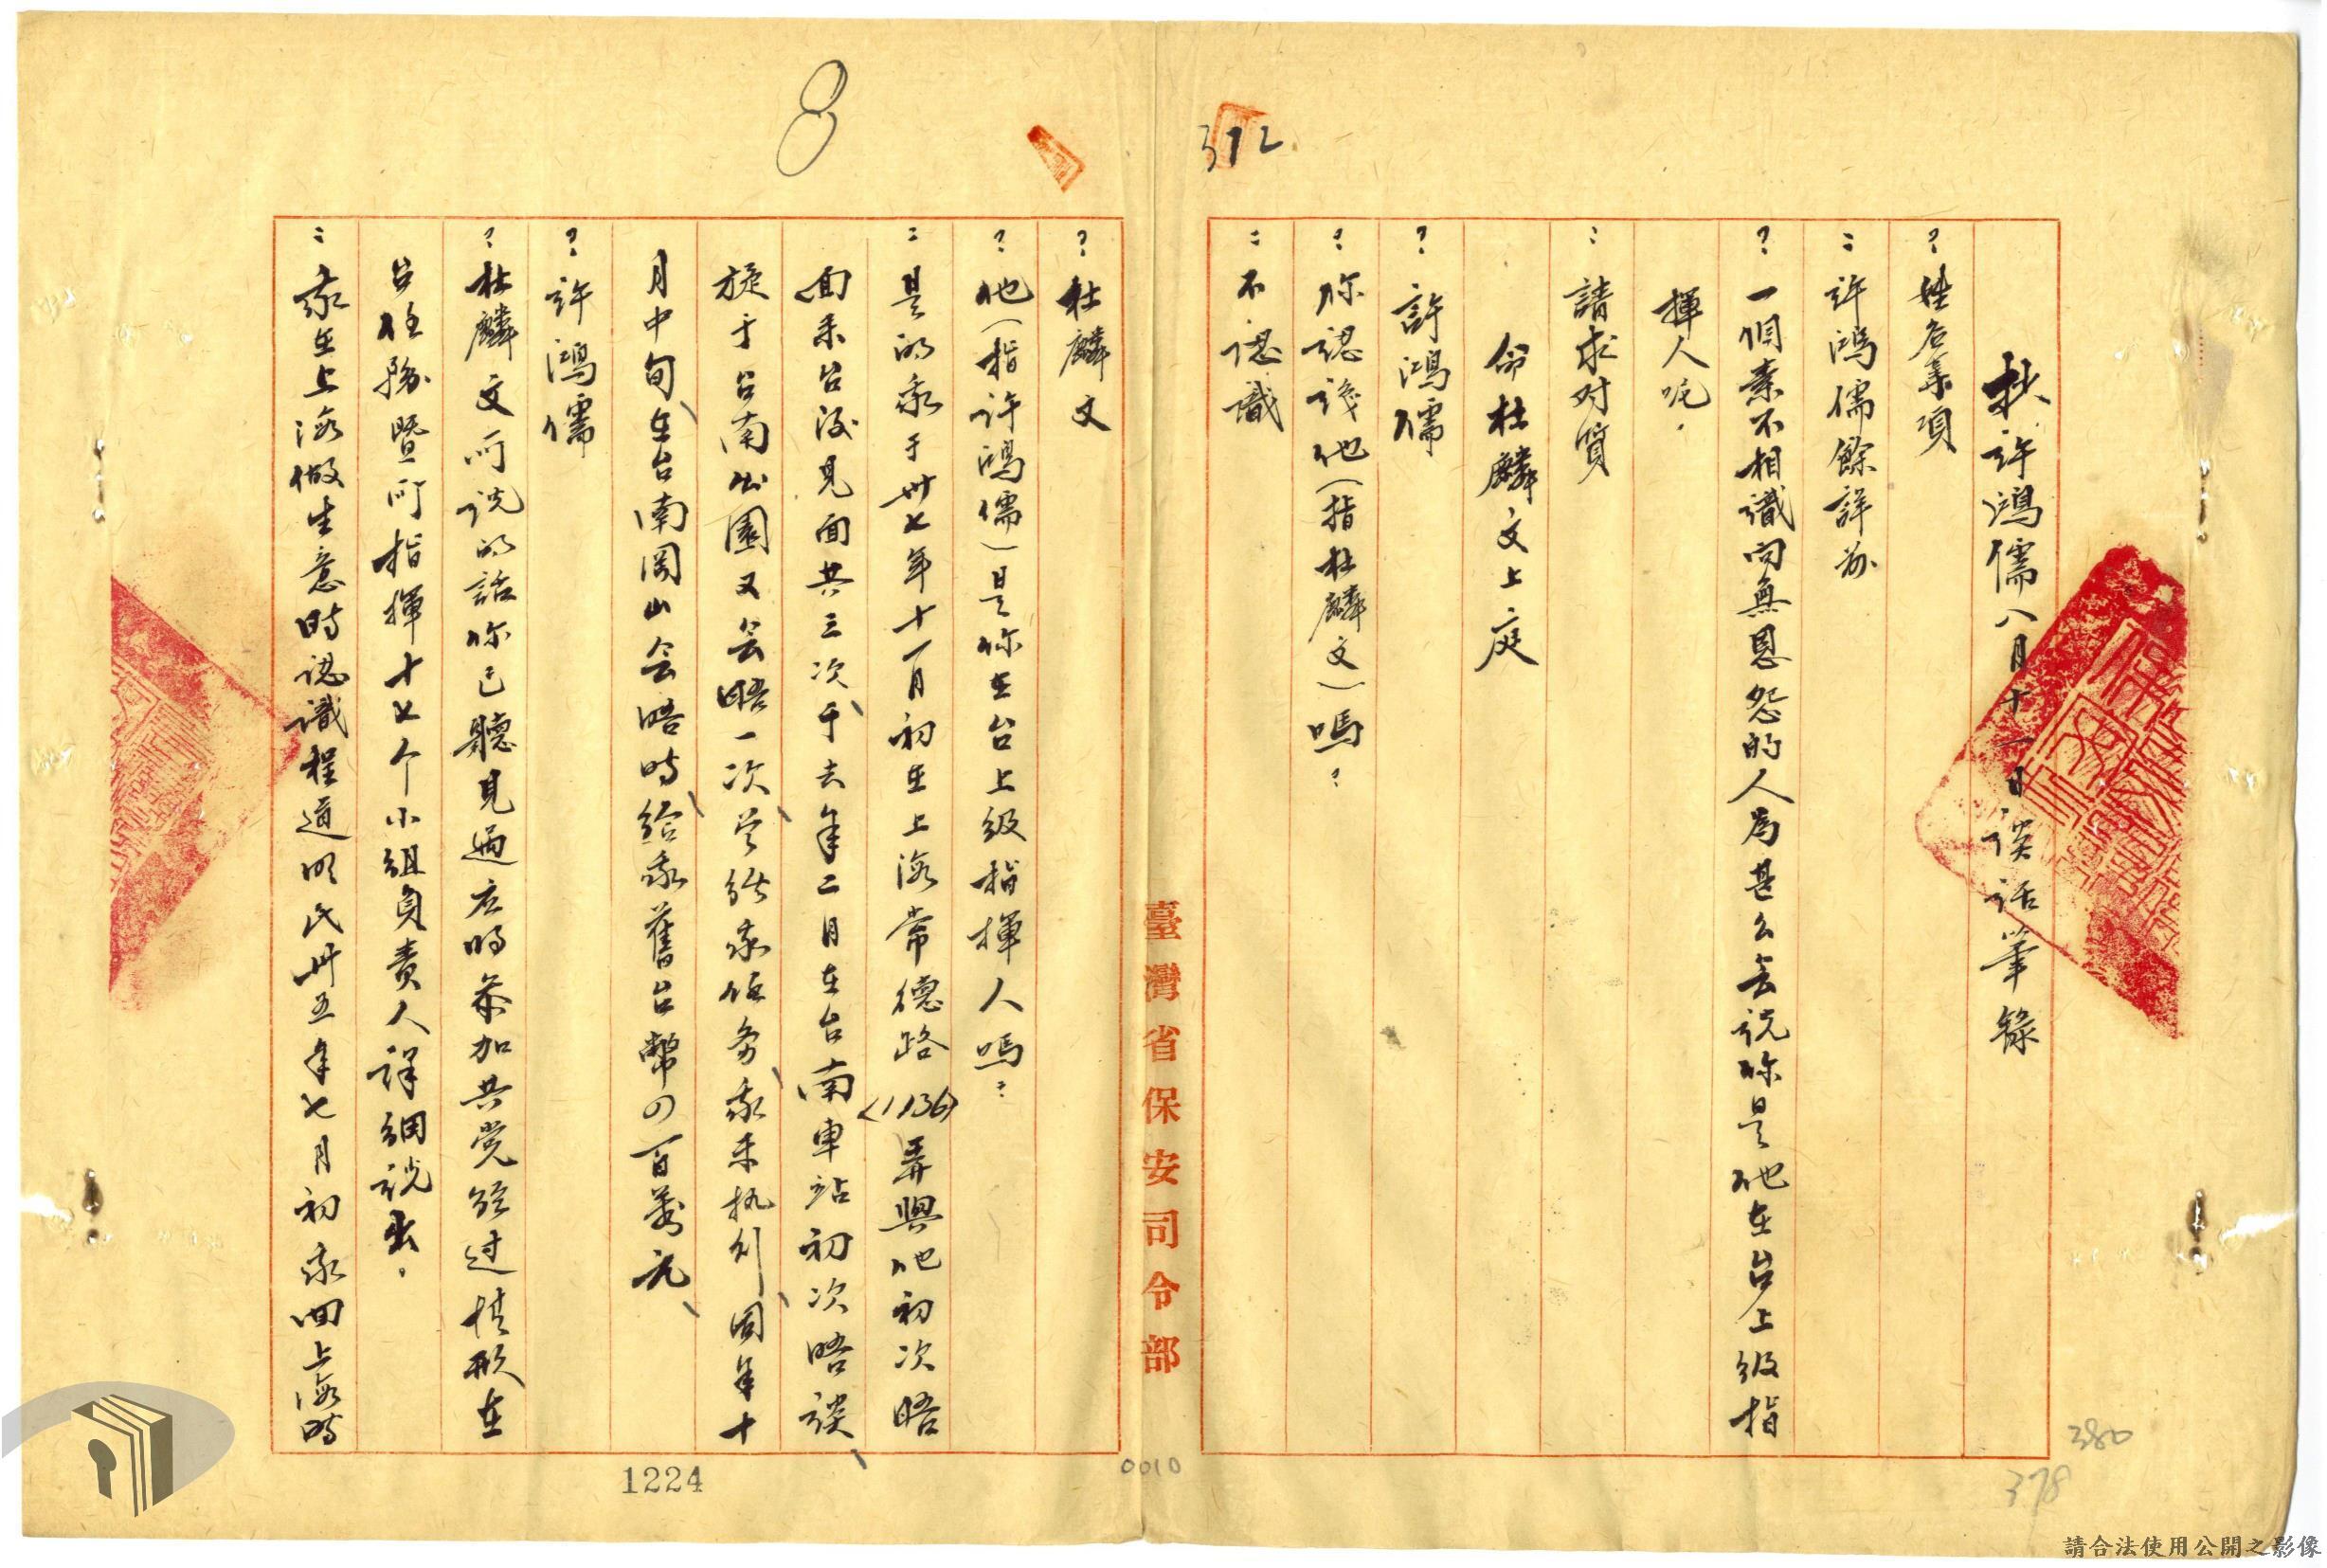 372
抄許鴻儒八月十一日談話筆錄
？姓名等項
：許鴻儒餘詳前
？一個素不相識向無恩怨的人為甚么会说你是他在台上级指
揮人呢．
：請求对質
命杜麟文上庭
？許鴻儒
？你認識他（指杜麟文）嗎？
：不認識
臺灣省保安司令部
8
？杜麟文
？他（指许鴻儒）是你在台上级指揮人嗎？
：是的我于卅七年十一月初在上海常德路<1136>弄與他初次晤
面來台後見面共三次、于去年二月在台南車站初次晤談、
旋于台南公園又会晤一次、我來执行、同年十
月中旬、在台南岡山会晤時、給我舊台幣四百萬元、
？許鴻儒
？杜麟文所说的話你已聽見過应将參加共党经过情形在
台任務暨所指揮十七个小组負责人詳細说出．
：我在上海做生意時認識程道明民卅五年七月初我回上海時
1224
0010
380
378
請合法使用公開之影像